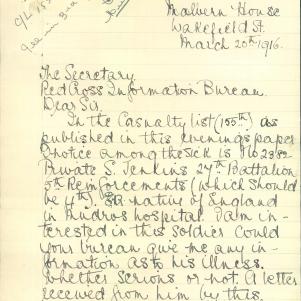 Malvern House
Wakefield St.
March 20th 1916.
The Secretary
Red Cross Information Bureau.
Dear Sir.
In the Casualty list (155th) as
published in this evenings paper
I notice among the sick is No 2382
Private S. Jenkins 24th Battalion
5th Reinforcements (which should
be 4th). a native of England
in Mudros hospital I am in-
terested in this soldier could
your bureau give me any in-
formation as to his illness.
Whether serious or not A letter
received from him by this